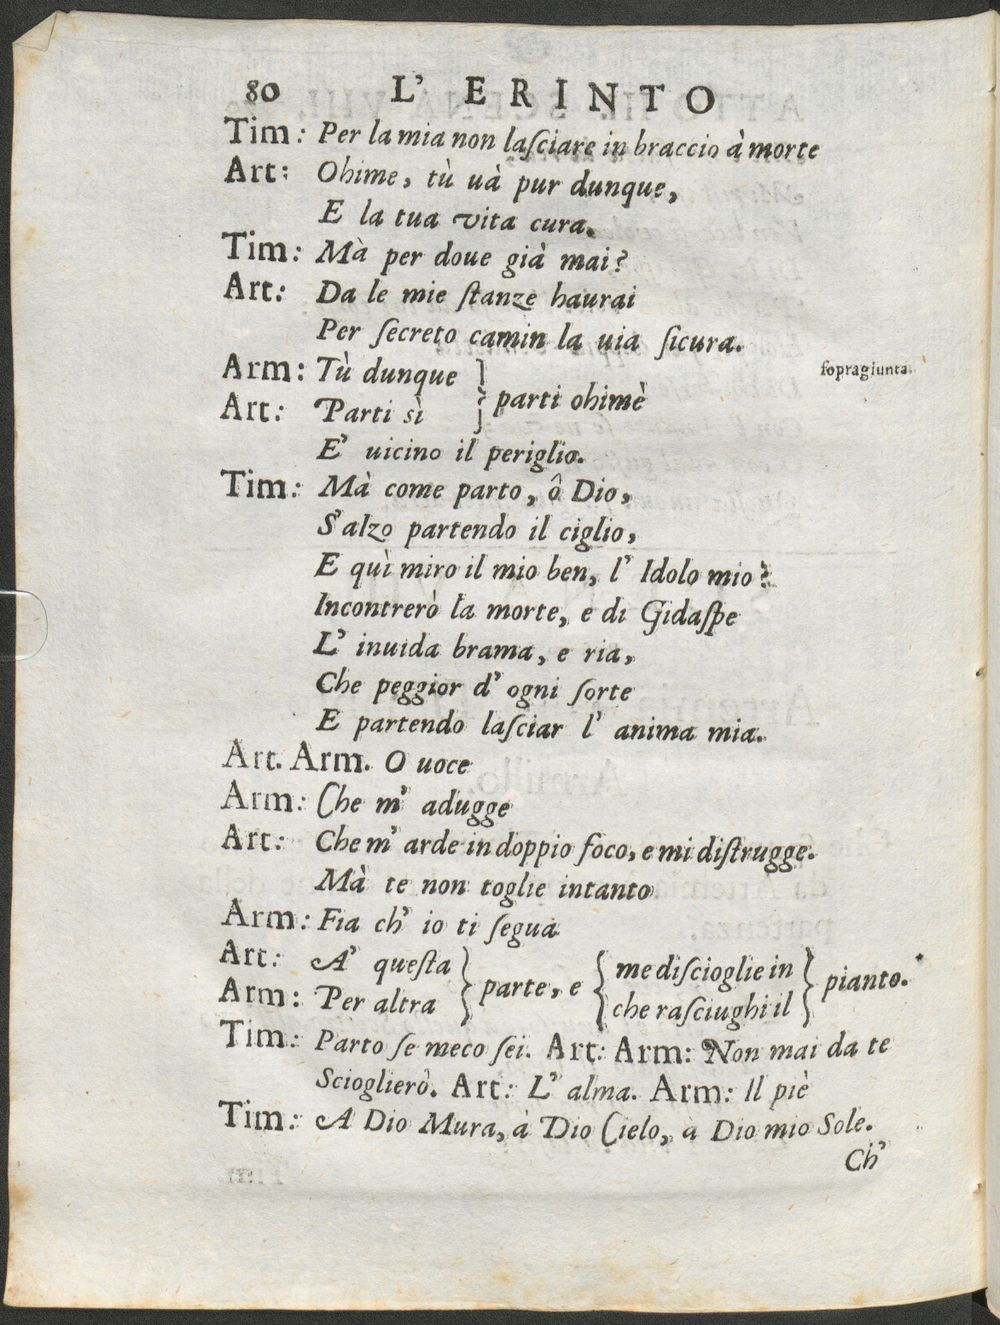 80 L' ERINTO
Tim: Per la mia non laſciare in braccio à morte
Art: Ohime, tù uà pur dunque,
E la tua vita cura.
Tim: Mà per doue già mai?
Art: Da le mie ſtanze haurai
Per ſecreto camin la uia ſicura.
Arm: Tù dunque } parti ohimè ſopragiunta.
Art: Parti sì
E' uicino il periglio.
Tim: Mà come parto, ô Dio,
S'alzo partendo il ciglio,
E quì miro il mio ben, l' Idolo mio?
Incontrerò la morte, e di Gidaſpe
L' inuida brama, e ria,
Che peggior d' ogni ſorte
E partendo laſciar l' anima mia.
Art. Arm. O uoce
Arm: Che m' adugge
Art: Che m' arde in doppio foco, e mi diſtrugge.
Mà te non toglie intanto
Arm: Fia ch' io ti ſegua
Art: A' queſta } parte, e { me diſcioglie in } pianto.
Arm: Per altra che raſciughi il
Tim: Parto ſe meco ſei. Art: Arm: Non mai da te
Scioglierò. Art: L' alma. Arm: Il piè
Tim: A Dio Mura, à Dio Cielo, à Dio mio Sole.
Ch'